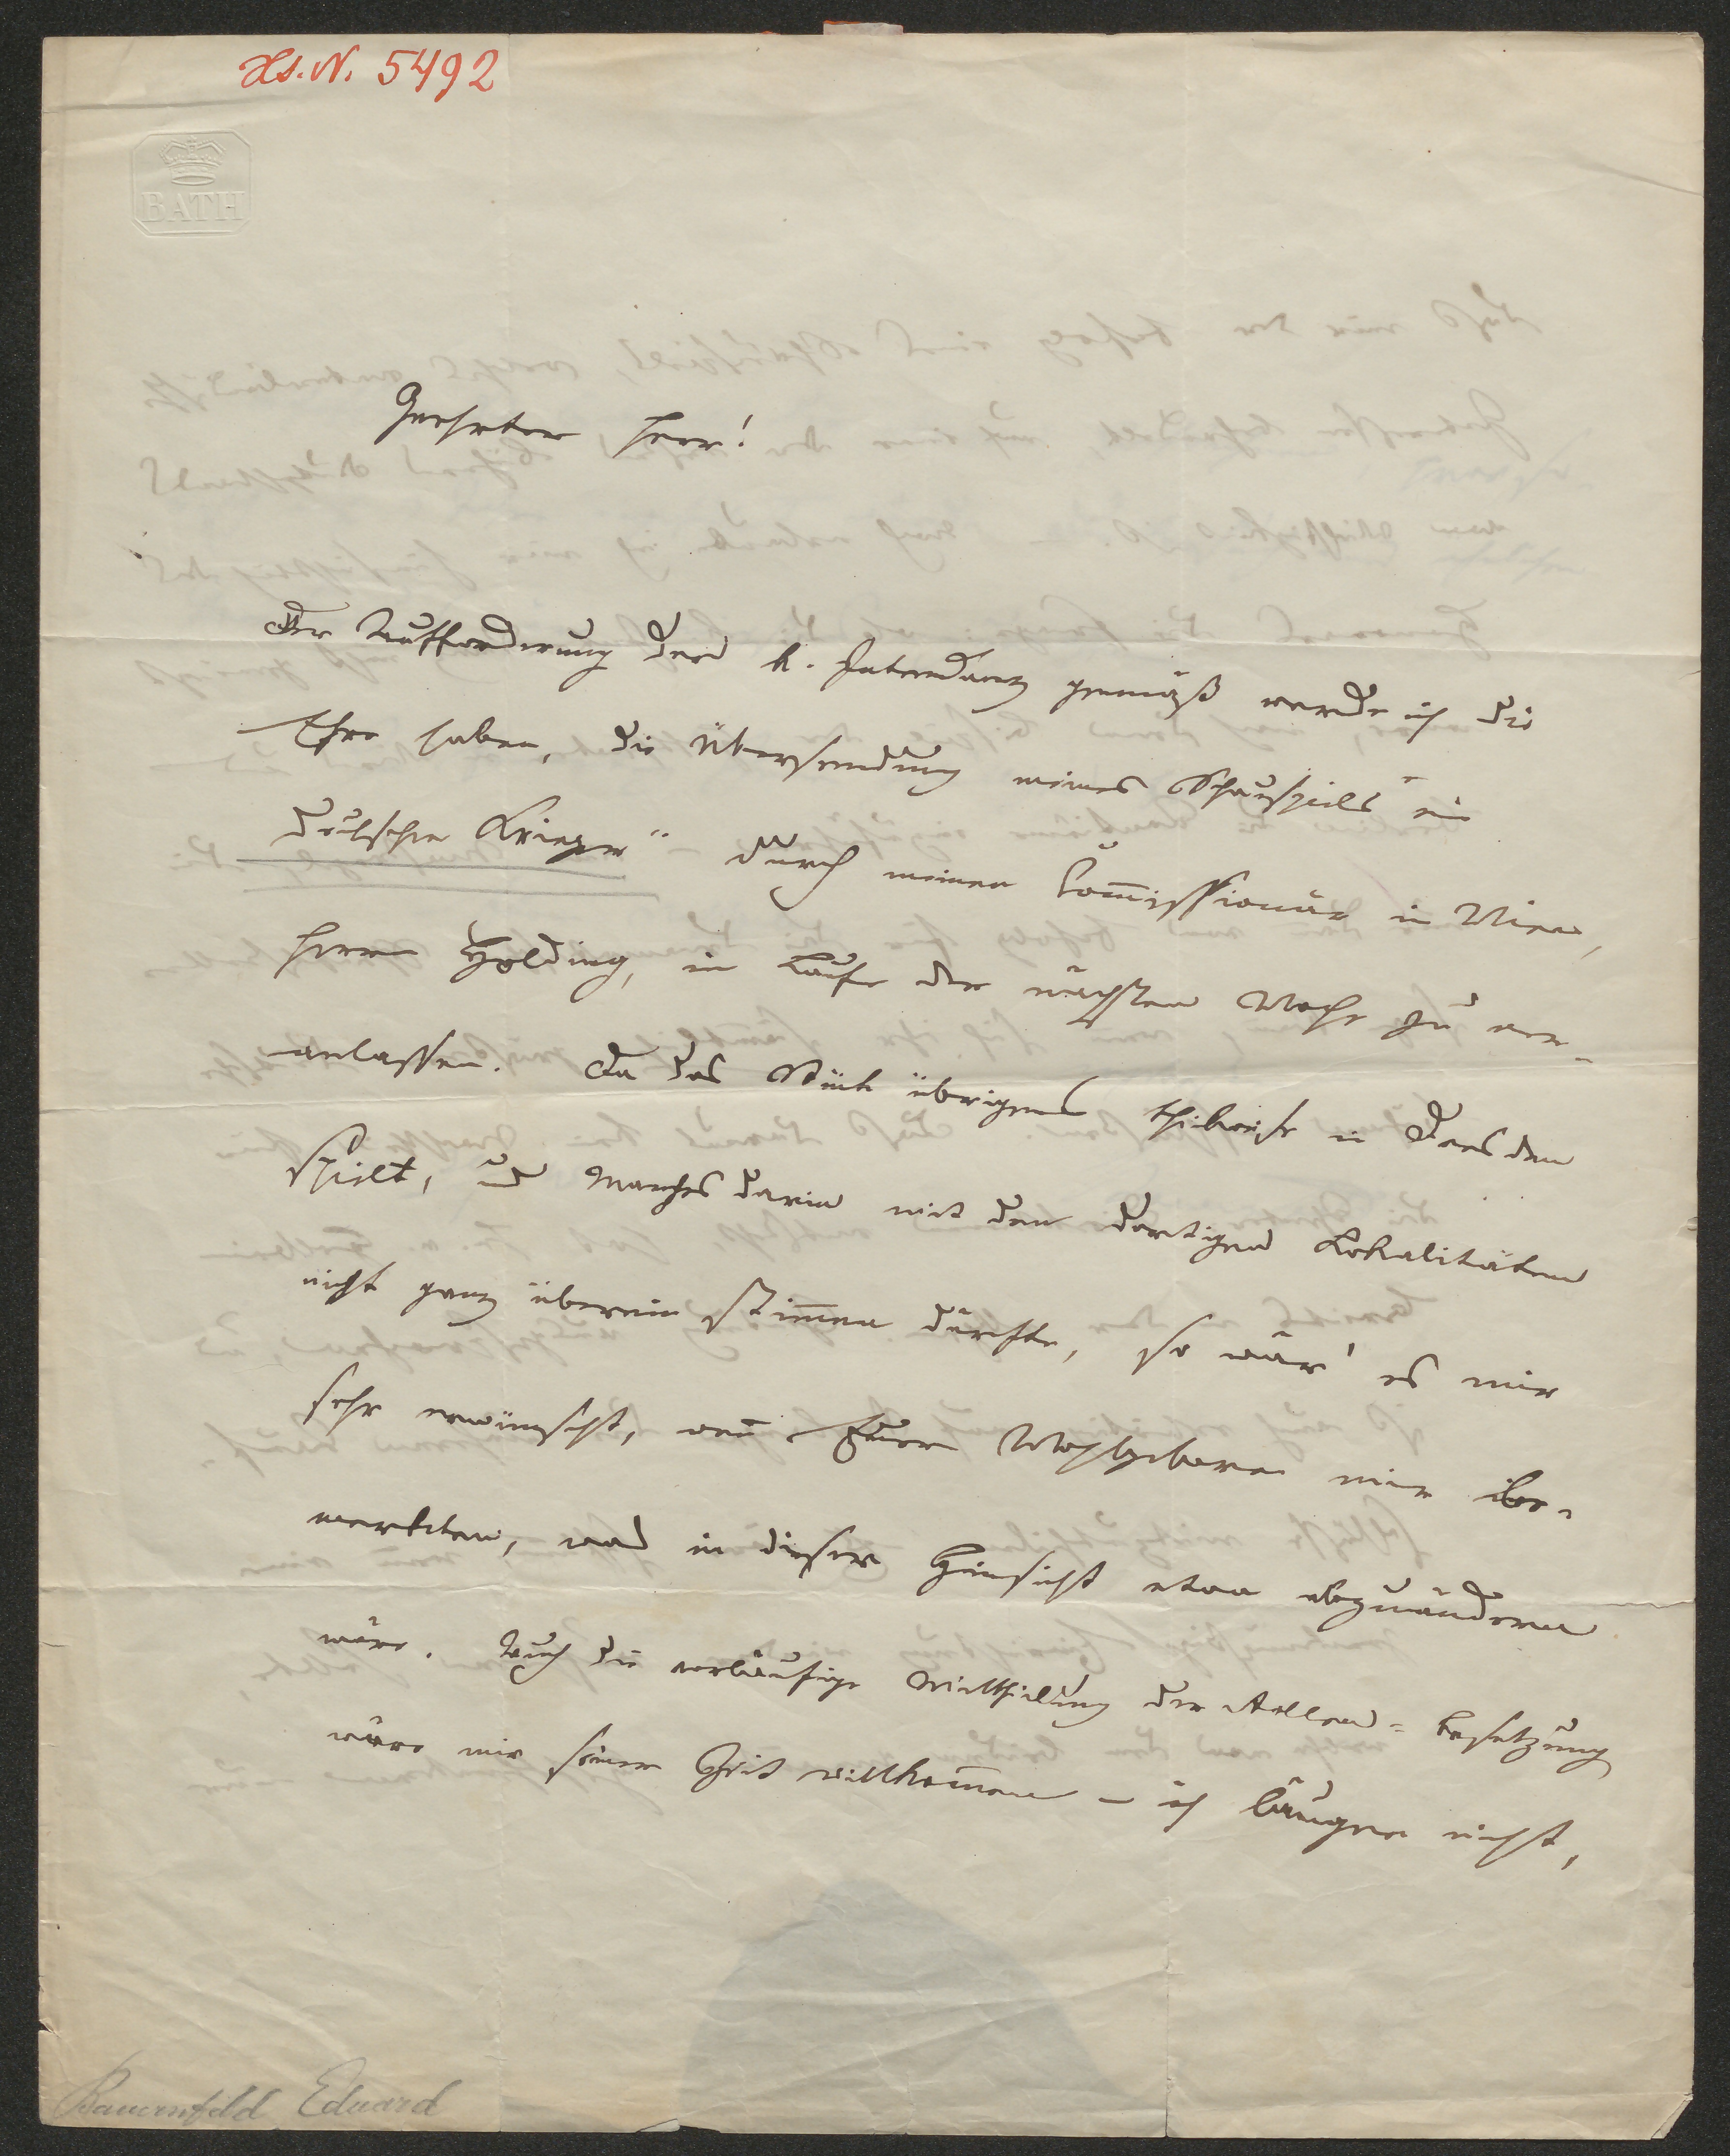 Hs. N. 5492
BATH
Geehrter Herr!
Der Aufforderung der k. Intendanz gemäß werde ich die
Ehre haben, die Übersendung meines Schauspiels "ein
deutscher Krieger" durch meinen Com̄issionär in Wien,
Herrn Holding, im Laufe der nächsten Woche zu ver-
anlassen. Da das Stück übrigens theilweise in Dresden
spielt, und Manches darin mit den dortigen Lokalitäten
nicht ganz überein stim̄en dürfte, so wär' es mir
sehr erwünscht, wen̄ Euer Wohlgeboren mir be-
merkten, was in dieser Hinsicht etwa abzuändern
wäre. Auch die vorläufige Mittheilung der Rollen-besetzung
wäre mir seiner Zeit willkom̄en – ich läugne nicht,
Bauernfeld Eduard